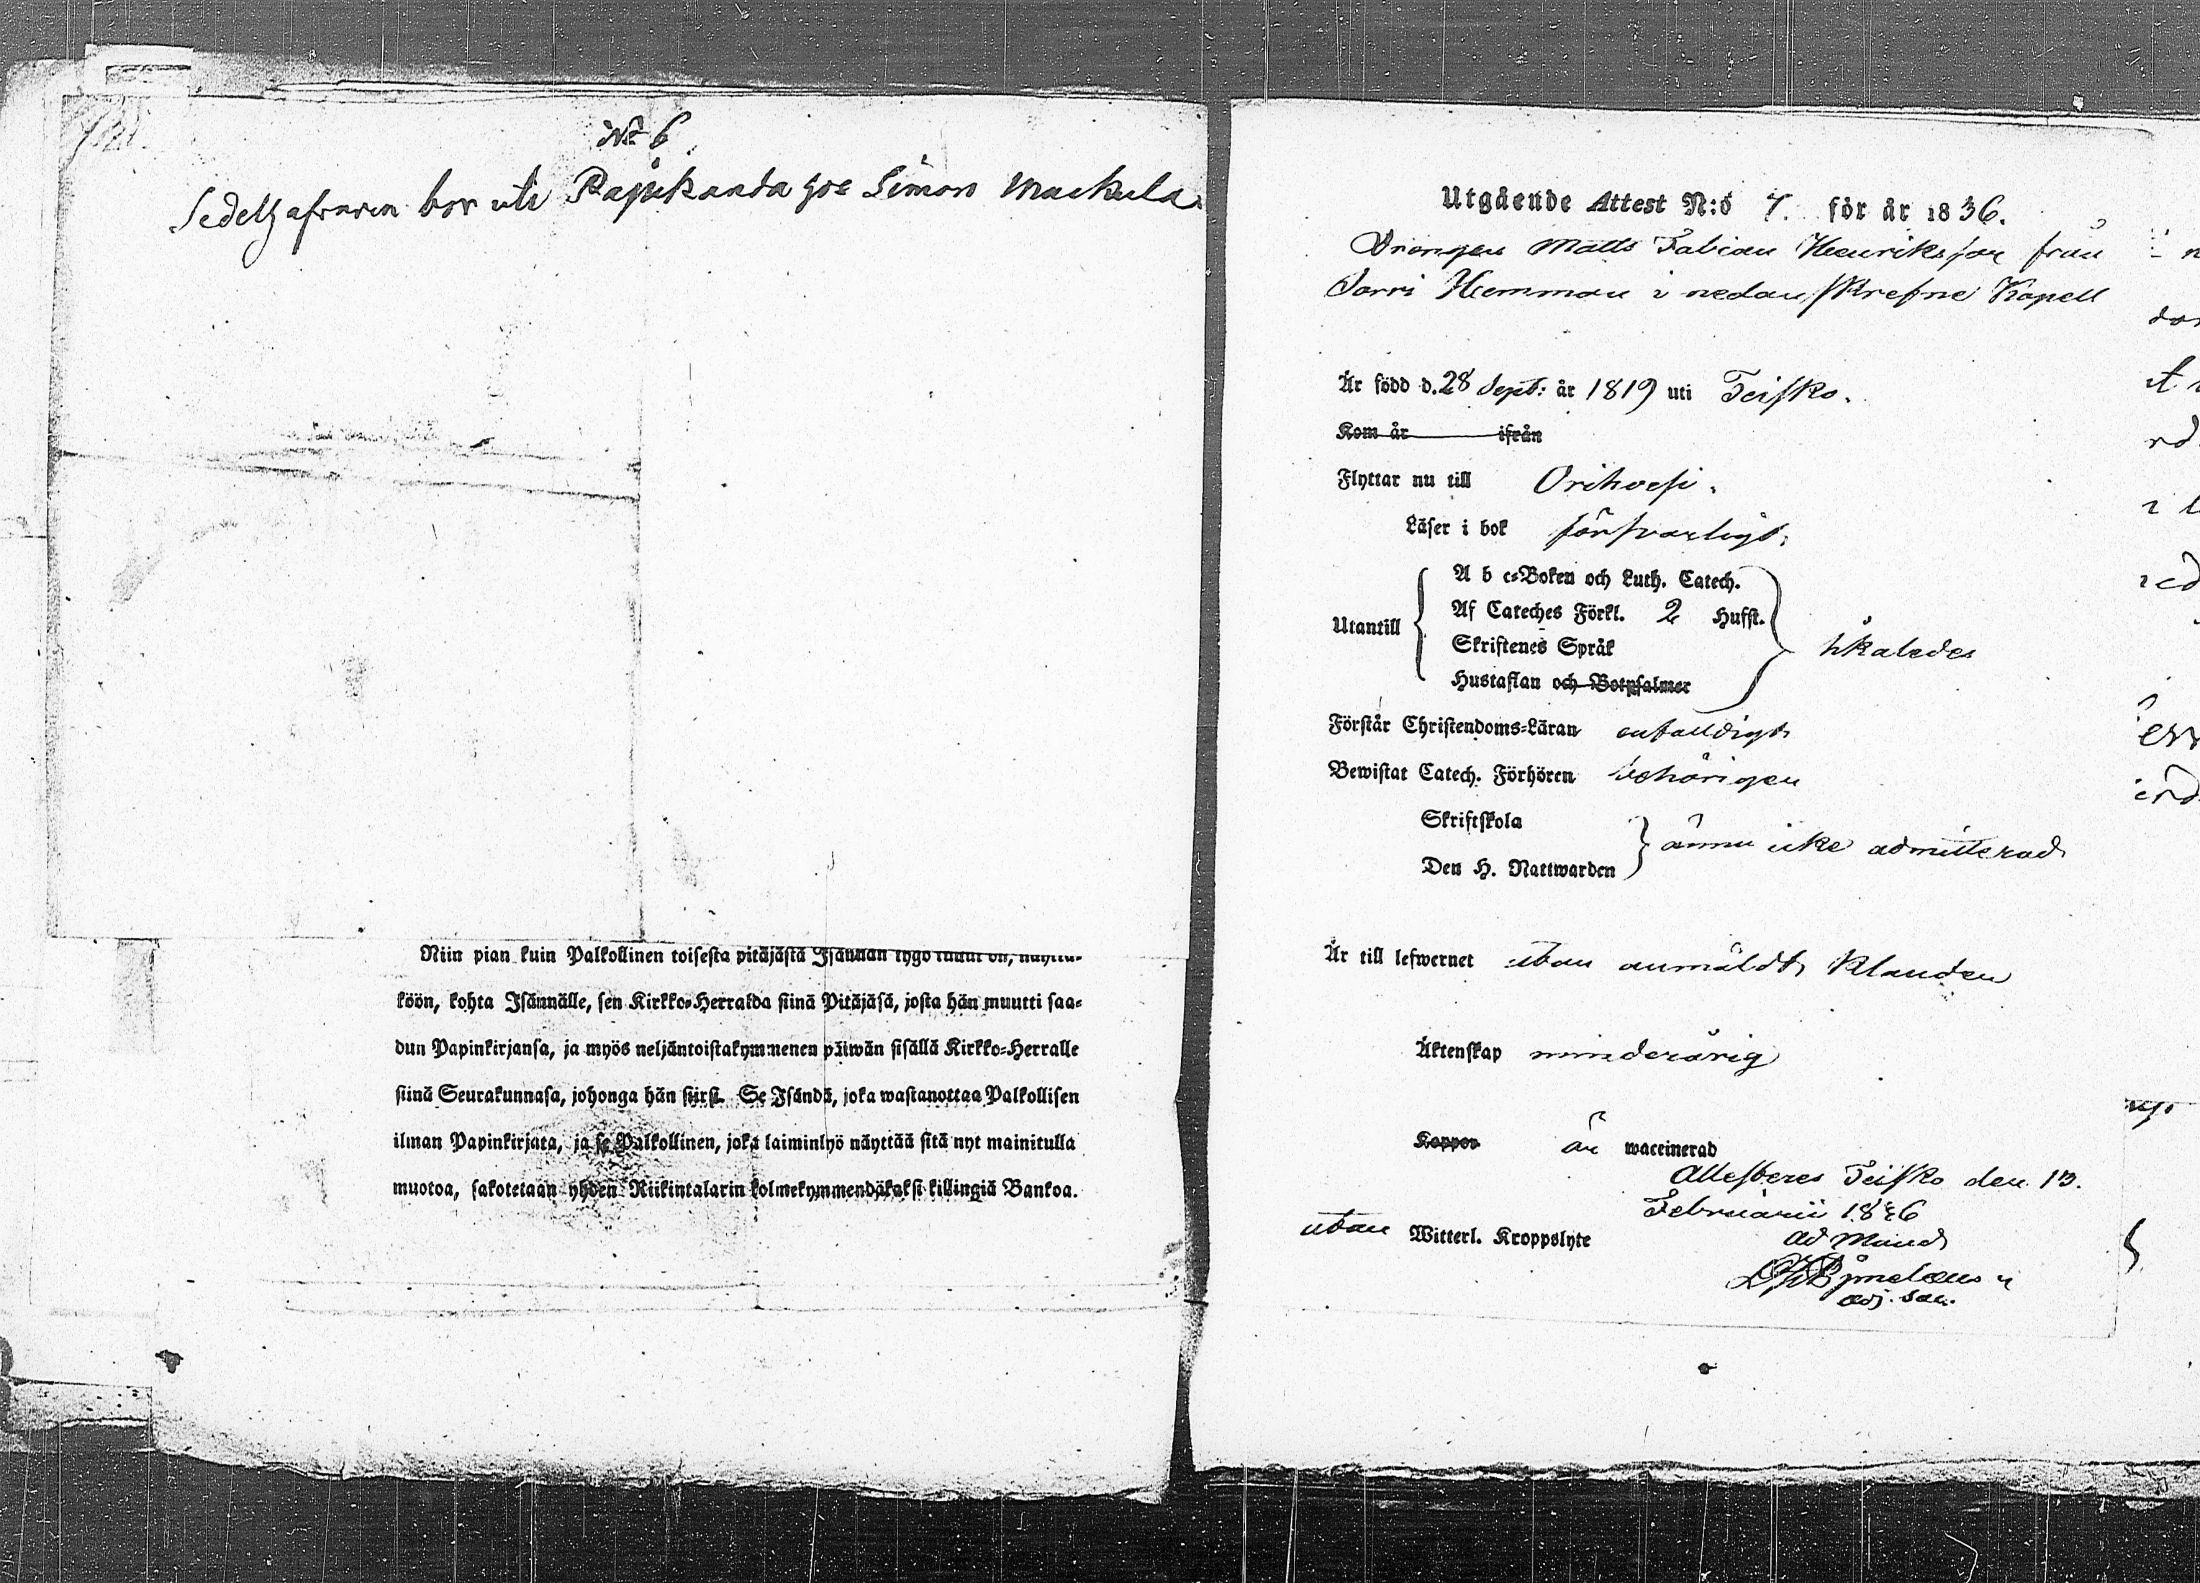 No 6
Sedelhafvaren bor uti Pajukanda hos Simon Muckula
Niin pian kuin Palkollinen toisesta pitäjästä Isännän tygö tullut on, näyttä-
köön, kohta Isännälle, sen Kirkko-Herralda siinä Pitäjäsä, josta hän muutti saa-
dun Papinkirjansa, ja myös neljäntoistakymmenen päiwän sisällä Kirkko-Herralle
siinä Seurakunnasa, johonga hän siirsi. Se Isändä, joka wastanottaa Palkollisen
ilman Papinkirjata, ja se Palkollinen, joka laiminlyö näyttää sitä nyt mainitulla
muotoa, sakotetaan yhden Riikintalarin kolmekymmendäkaksi killingiä Bankoa.
Utgående Attest N:o 7. för år 1836.
Drängen Matts Fabian Henriksson från
Jorri Hemman i nedanskrefne Kapell
Är född d. 28 Sept: år 1819 uti Teisko.
Kom år ifrån
Flyttar nu till Orihvesi.
Läser i bok försvarligt.
Utantill
A b c-Boken och Luth. Catech.
Af Cateches Förkl. 2 Hufst.
Skriftenes Språk
Hustaflan och Botpsalmer
likaledes
Förstår Christendoms-Läran enfaldigt
Bewistat Catech. Förhören behörigen
Skriftskola
Den H. Nattwarden
ännu icke admitterad
Är till lefwernet utan anmäldt klander
Äktenskap minderårig
Koppor är waccinerad
Attesteres Teisko den 13.
Februarii 1836
utan Witterl. Kroppslyte
ad Mand
adj. sac.